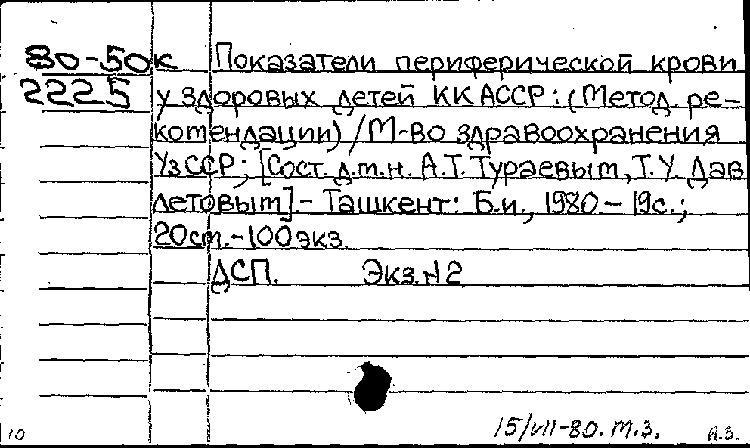 80-50к Показатели периферической крови
2225 у здоровых детей ККАССР: (Метод. ре-
комендации) / М-во здравоохранения
УзССР; [Сост. д.м.н. А.Т. Тураевым, Т.У. Дав
летовым]. - Ташкент: Б.и., 1980 - 19с.;
20см. - 100экз.
ДСП. Экз. №2
15/VII-80. т.з. А.З.
10